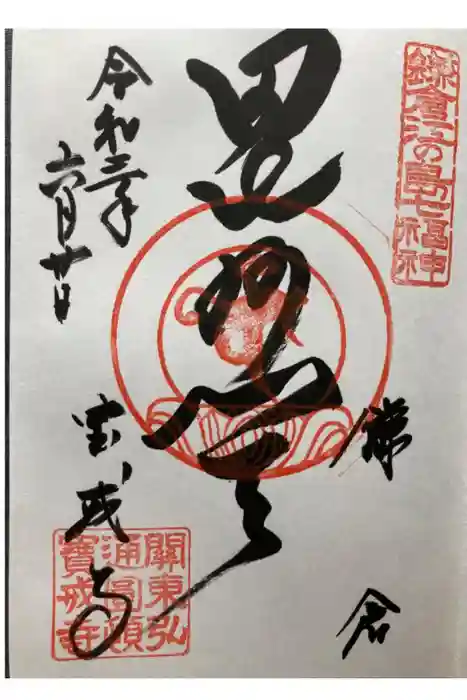 鎌倉江の島七福神
鎌
倉
毘沙門天
令和二年
六月廿日
宝戒寺
關東弘
通圓頓
寶戒寺